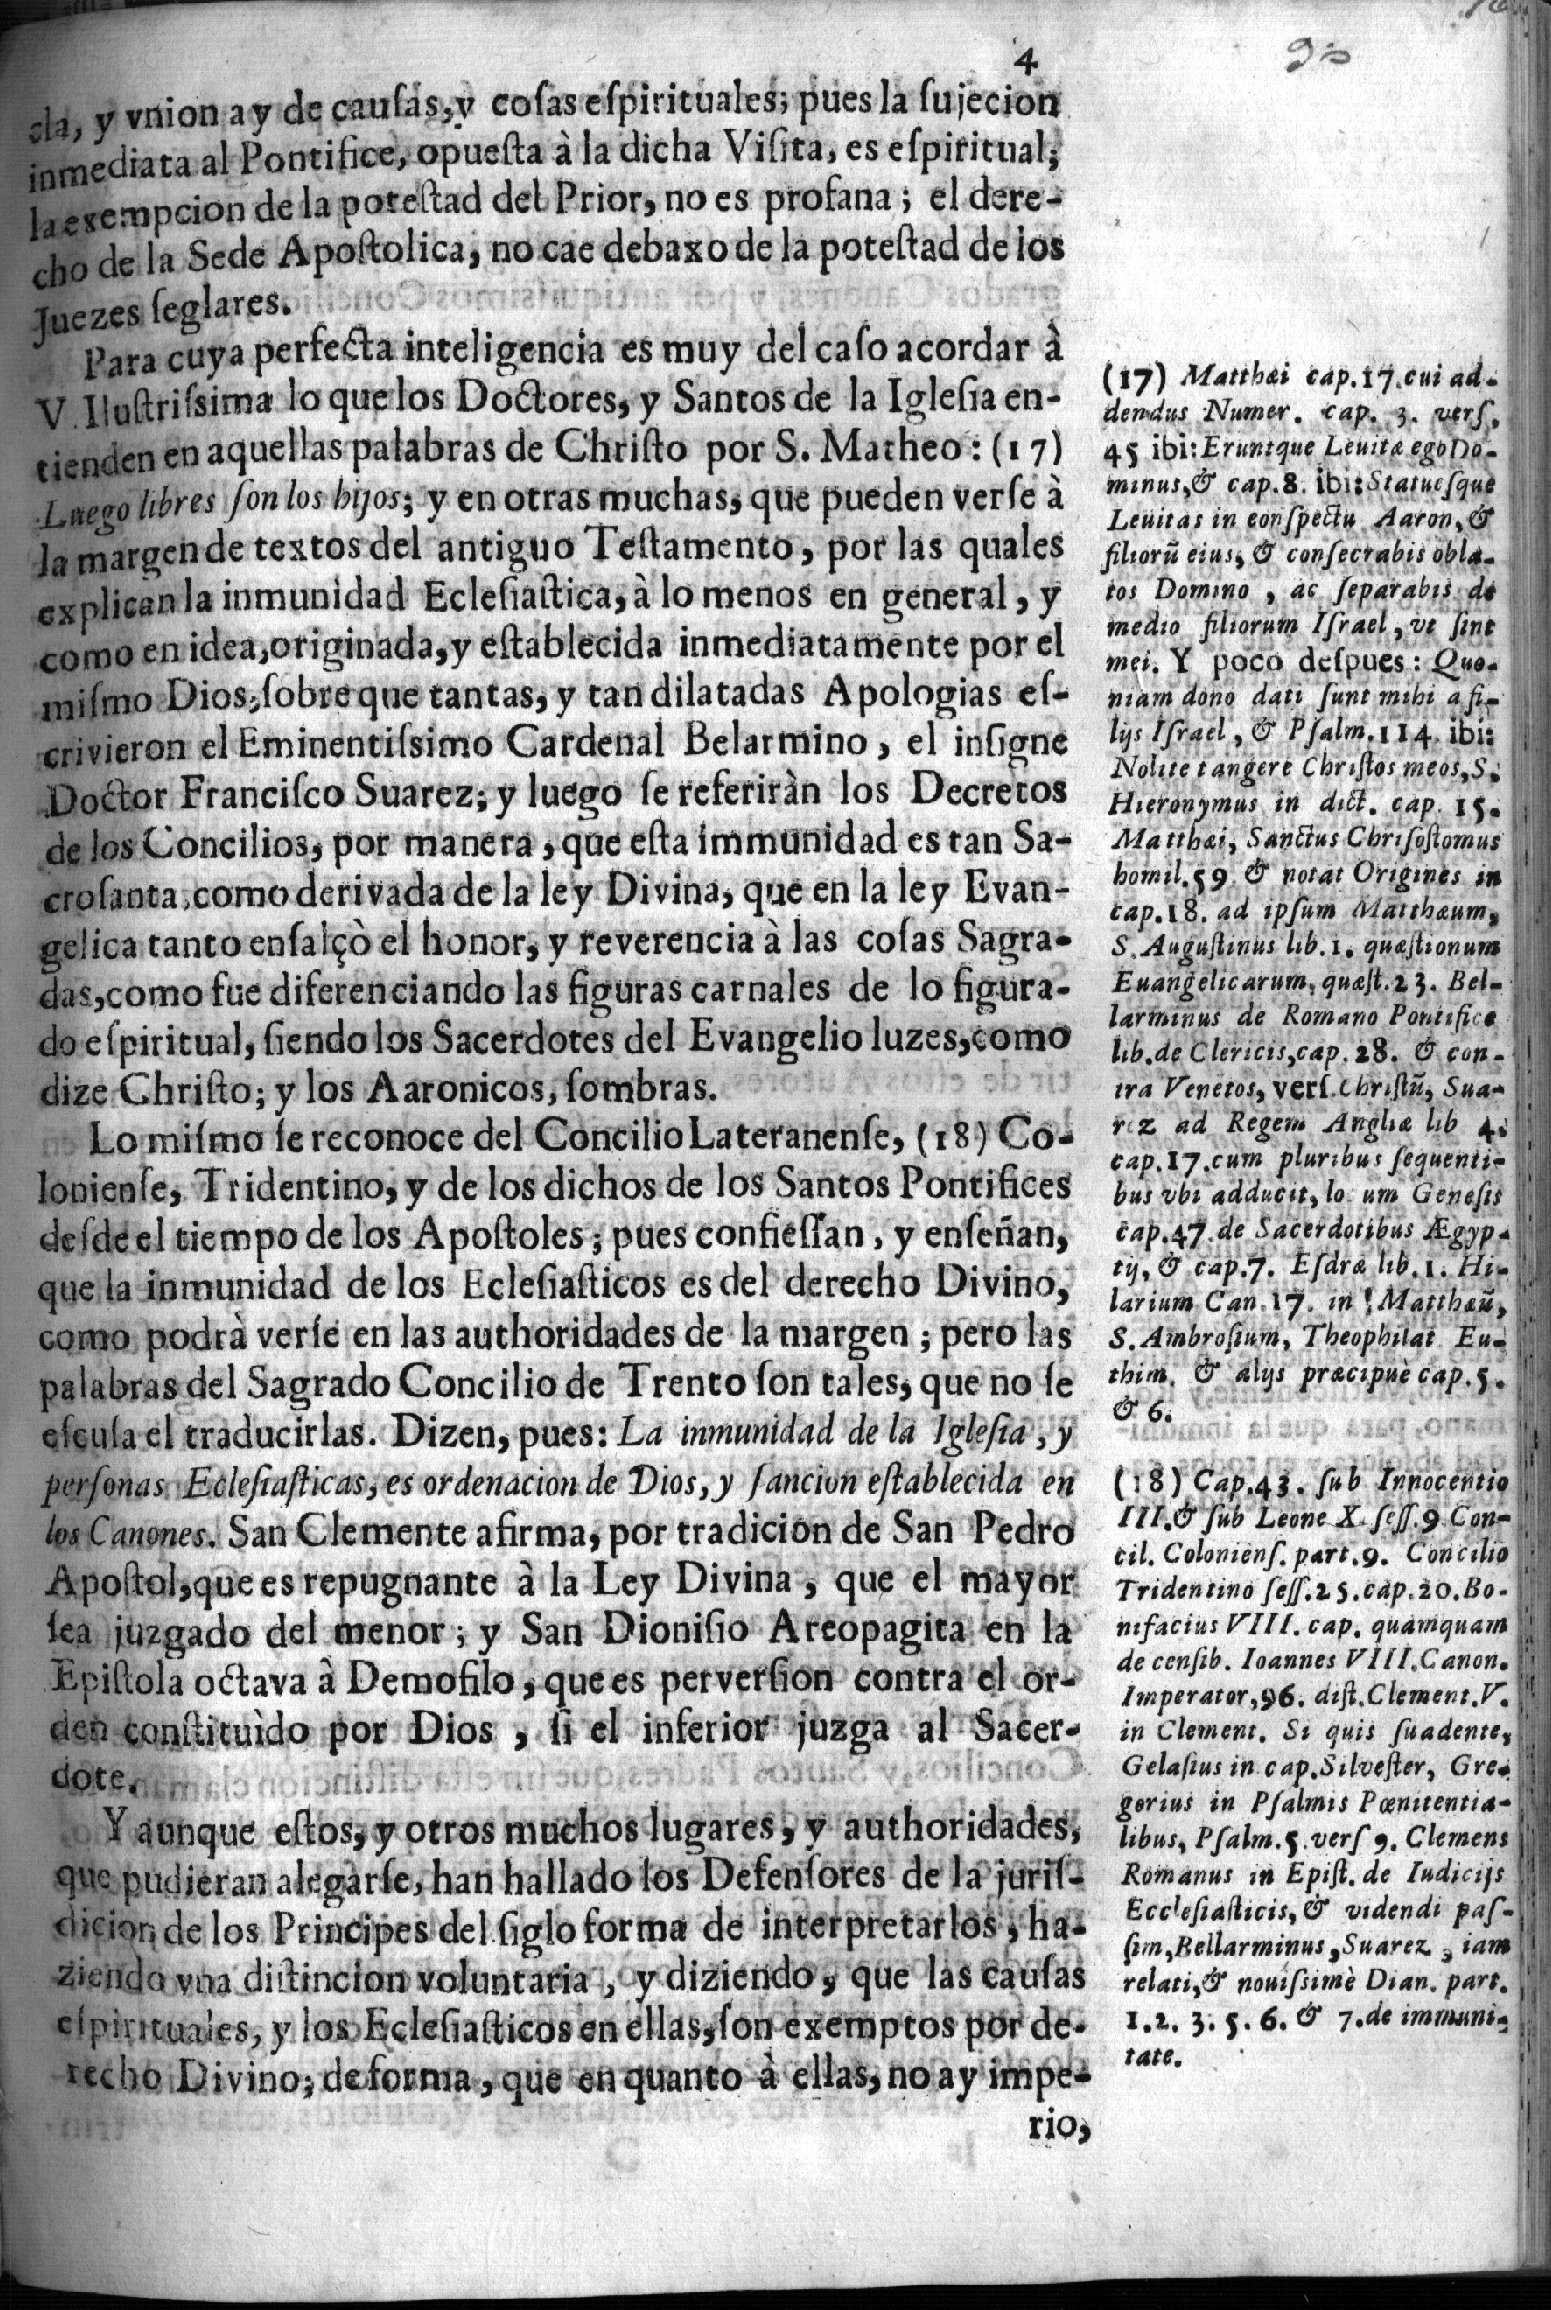 4
cla, y vnion ay de causas, y cosas eſpirituales; pues la ſujecion
inmediata al Pontifice, opueſta à la dicha Viſita, es eſpiritual;
la exempcion de la poteſtad del Prior, no es profana; el dere-
cho de la Sede Apoſtolica, no cae debaxo de la poteſtad de los
Juezes ſeglares.
Para cuya perfecta inteligencia es muy del caſo acordar à
V. Iluſtriſsima lo que los Doctores, y Santos de la Igleſia en-
tienden en aquellas palabras de Chriſto por S. Matheo: (17)
Luego libres ſon los hijos; y en otras muchas, que pueden verſe à
la margen de textos del antiguo Teſtamento, por las quales
explican la inmunidad Ecleſiaſtica, à lo menos en general, y
como en idea, originada, y eſtablecida inmediatamente por el
miſmo Dios; ſobre que tantas, y tan dilatadas Apologias eſ-
crivieron el Eminentiſsimo Cardenal Belarmino, el inſigne
Doctor Franciſco Suarez; y luego ſe referiràn los Decretos
de los Concilios, por manera, que eſta immunidad es tan Sa-
croſanta, como derivada de la ley Divina, que en la ley Evan-
gelica tanto enſalçò el honor, y reverencia à las coſas Sagra-
das, como fue diferenciando las figuras carnales de lo figura-
do eſpiritual, ſiendo los Sacerdotes del Evangelio luzes, como
dize Chriſto; y los Aaronicos, ſombras.
Lo miſmo ſe reconoce del Concilio Lateranenſe, (18) Co-
lonienſe, Tridentino, y de los dichos de los Santos Pontifices
deſde el tiempo de los Apoſtoles; pues confieſſan, y enſeñan,
que la inmunidad de los Ecleſiaſticos es del derecho Divino,
como podrà verſe en las authoridades de la margen; pero las
palabras del Sagrado Concilio de Trento ſon tales, que no ſe
eſcuſa el traducirlas. Dizen, pues: La inmunidad de la Igleſia, y
perſonas Ecleſiaſticas, es ordenacion de Dios, y ſancion eſtablecida en
los Canones. San Clemente afirma, por tradicion de San Pedro
Apoſtol, que es repugnante à la Ley Divina, que el mayor
ſea juzgado del menor; y San Dioniſio Areopagita en la
Epiſtola octava à Demofilo, que es perverſion contra el or-
den conſtituìdo por Dios, ſi el inferior juzga al Sacer-
dote.
Y aunque eſtos, y otros muchos lugares, y authoridades,
que pudieran alegarſe, han hallado los Defenſores de la juriſ-
dicion de los Principes del ſiglo forma de interpretarlos, ha-
ziendo vna diſtincion voluntaria, y diziendo, que las cauſas
eſpirituales, y los Ecleſiaſticos en ellas, ſon exemptos por de-
recho Divino; de forma, que en quanto à ellas, no ay impe-
rio,
(17) Matthæi cap.17.cui ad-
dendus Numer. cap. 3. verſ.
45 ibi: Eruntque Leuitæ ego Do-
minus, & cap.8. ibi: Statueſque
Leuitas in conſpectu Aaron, &
filiorũ eius, & conſecrabis obla-
tos Domino, ac ſeparabis de
medio filiorum Iſrael, vt ſint
mei. Y poco deſpues: Quo-
niam dono dati ſunt mihi a fi-
lijs Iſrael, & Pſalm.114 ibi:
Nolite tangere Chriſtos meos, S.
Hieronymus in dict. cap. 15.
Matthæi, Sanctus Chriſoſtomus
homil.59. & notat Origines in
cap.18. ad ipſum Matthæum,
S. Auguſtinus lib.1. quæſtionum
Euangelicarum, quæſt.23. Bel-
larminus de Romano Pontifice
lib.de Clericis,cap.28. & con-
tra Venetos, verſ.Chriſtũ, Sua-
rez ad Regem Angliæ lib 4.
cap.17.cum pluribus ſequenti-
bus vbi adducit, locum Geneſis
cap.47.de Sacerdotibus Ægyp-
tij, & cap.7. Eſdræ lib.1. Hi-
larium Can.17. in Matthæũ,
S. Ambroſium, Theophilat Eu-
thim. & alijs præcipuè cap.5.
& 6.
(18) Cap.43. ſub Innocentio
III.& ſub Leone X. ſeſſ.9 Con-
cil. Colonienſ. part.9. Concilio
Tridentino ſeſſ.25.cap.20.Bo-
nifacius VIII. cap. quamquam
de cenſib. Ioannes VIII.Canon.
Imperator,96. diſt.Clement.V.
in Clement. Si quis ſuadente,
Gelaſius in cap.Silveſter, Gre-
gorius in Pſalmis Pœnitentia-
libus, Pſalm.5.verſ 9. Clemens
Romanus in Epiſt. de Iudicijs
Eccleſiaſticis, & videndi paſ-
ſim,Bellarminus,Suarez, iam
relati,& nouiſsimè Dian. part.
1.2. 3. 5. 6. & 7.de immuni-
tate.